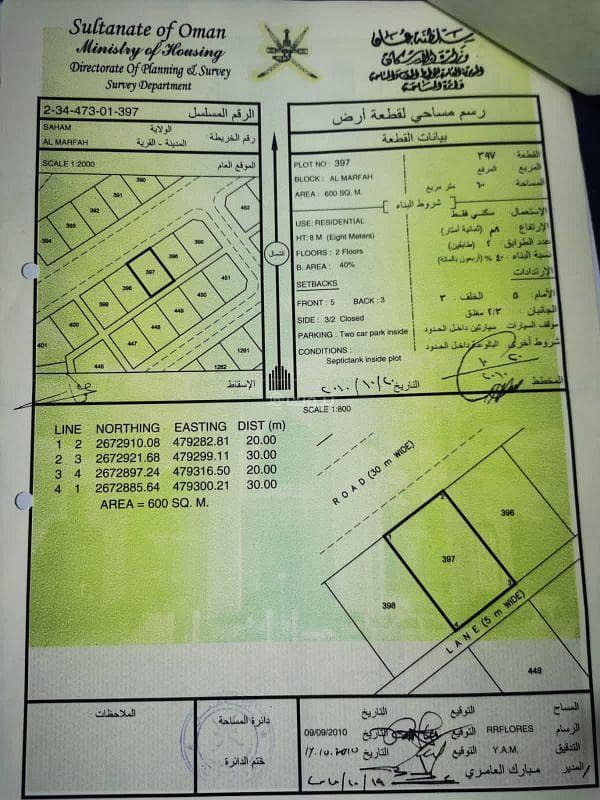 Sultanate of Oman
Ministry of Housing
Directorate of Planning & Survey
Survey Department
سلطنة عمان
وزارة الإسكان
2-34-473-01-397 الرقم المسلسل
SAHAM الولاية
AL MARFAH المدينة - القرية رقم الخريطة
SCALE 1:2000 الموقع العام
390
391
392
393
394
482
395
396
397
398
399
400
401
451
450
449
448
447
446
1261
1262
الإسقاط
الشمال
رسم مساحي لقطعة أرض
بيانات القطعة
PLOT NO : 397 القطعة ٣٩٧
BLOCK : AL MARFAH المربع المرفع
AREA : 600 SQ. M. المساحة متر مربع
شروط البناء
USE: RESIDENTIAL الإستعمال سكني فقط
HT: 8 M (Eight Meters) الإرتفاع ٨م (ثمانية أمتار)
FLOORS : 2 Floors عدد الطوابق ٢ (طابقين)
B. AREA : 40% نسبة البناء ٤٠ % (أربعون بالمائة)
SETBACKS الإرتدادات
FRONT : 5 BACK : 3 الأمام ٥ الخلف ٣
SIDE : 3/2 Closed الجانبان ٢/٣ مغلق
PARKING : Two car park inside موقف السيارات سيارتين داخل الحدود
CONDITIONS : شروط أخرى البالوعة داخل الحدود
Septictank inside plot
المخطط
التاريخ ٢٠١٠/١٠/٢٠
SCALE 1:800
LINE NORTHING EASTING DIST (m)
1 2 2672910.08 479282.81 20.00
2 3 2672921.68 479299.11 30.00
3 4 2672897.24 479316.50 20.00
4 1 2672885.64 479300.21 30.00
AREA = 600 SQ. M.
ROAD (30 m WIDE)
1
2
3
4
396
397
398
LANE (5 m WIDE)
449
الملاحظات
دائرة المساحة
ختم الدائرة
المساح التوقيع التاريخ
الرسام RRFLORES التوقيع التاريخ 09/09/2010
التدقيق Y.A.M. التوقيع التاريخ 17.10.2010
المدير مبارك العامري